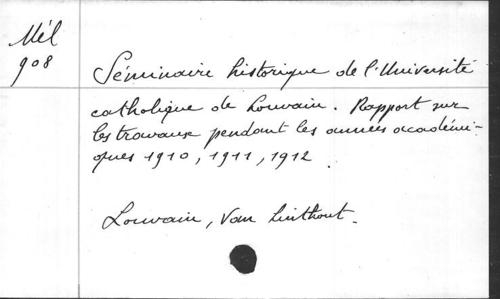 Mél
908
Séminaire historique de l'Université
catholique de Louvain. Rapport sur
les travaux pendant les années académi-
ques 1910, 1911, 1912.
Louvain, Van Linthout.